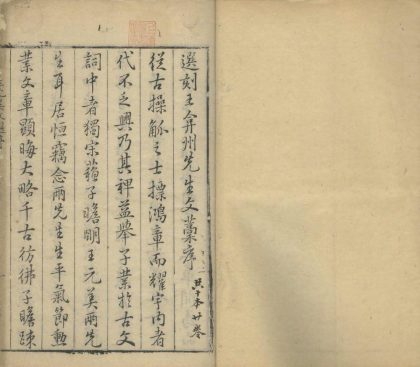 選刻王弇州先生文藁序
從古操觚之士摽鴻章而耀宇內者
代不乏興乃其裨益舉子業於古文
詞中者獨宗蘓子瞻明王元美兩先
生耳居恒竊念兩先生生平氣節勳
業文章顯晦大略千古彷彿子瞻踈
共十本廿卷